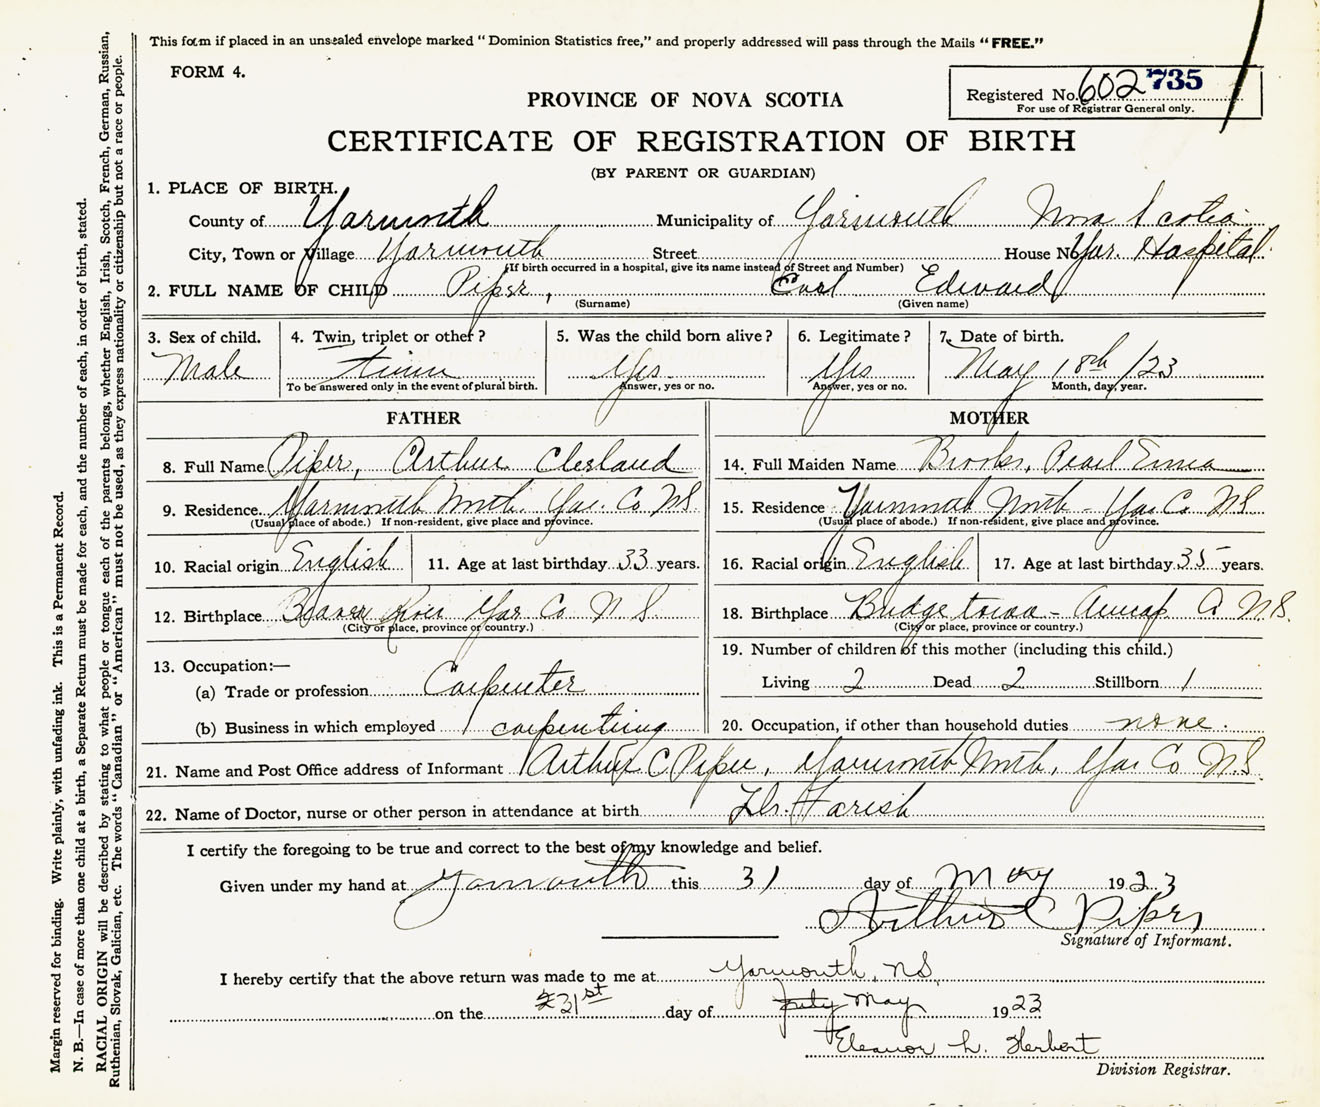 This form if placed in an unsealed envelope marked "Dominion Statistics free," and properly addressed will pass through the Mails "FREE."
FORM 4.
Registered No. 602735
For use of Registrar General only.
PROVINCE OF NOVA SCOTIA
CERTIFICATE OF REGISTRATION OF BIRTH
(BY PARENT OR GUARDIAN)
1. PLACE OF BIRTH.
County of Yarmouth Municipality of Yarmouth Nova Scotia
City, Town or Village Yarmouth Street House No Yar. Hospital.
(If birth occurred in a hospital, give its name instead of Street and Number)
2. FULL NAME OF CHILD Piper, Earl Edward
(Surname) (Given name)
3. Sex of child. 4. Twin, triplet or other? 5. Was the child born alive? 6. Legitimate? 7. Date of birth.
Male twin Yes Yes May 18th/23
To be answered only in the event of plural birth. Answer, yes or no. Answer, yes or no. Month, day, year.
FATHER MOTHER
8. Full Name Piper, Arthur Cleland 14. Full Maiden Name Brooks, Pearl Erma
9. Residence Yarmouth North. Yar. Co. NS. 15. Residence Yarmouth North - Yar Co. NS
(Usual place of abode.) If non-resident, give place and province. (Usual place of abode.) If non-resident, give place and province.
10. Racial origin English 11. Age at last birthday 33 years. 16. Racial origin English 17. Age at last birthday 35 years.
12. Birthplace Beaver River Yar Co N S 18. Birthplace Bridgetown - Annap Co N.S.
(City or place, province or country.) (City or place, province or country.)
13. Occupation:— 19. Number of children of this mother (including this child.)
(a) Trade or profession Carpenter Living 2 Dead 2 Stillborn 1
(b) Business in which employed carpentring 20. Occupation, if other than household duties none.
21. Name and Post Office address of Informant Arthur C Piper, Yarmouth North, Yar Co N.S.
22. Name of Doctor, nurse or other person in attendance at birth Dr. Farish
I certify the foregoing to be true and correct to the best of my knowledge and belief.
Given under my hand at Yarmouth this 31 day of May 1923
Arthur C Piper
Signature of Informant.
I hereby certify that the above return was made to me at Yarmouth, NS
on the 31st day of July May 1923
Eleanor L. Herbert
Division Registrar.
Margin reserved for binding. Write plainly, with unfading ink. This is a Permanent Record.
N. B.—In case of more than one child at a birth, a Separate Return must be made for each, and the number of each, in order of birth, stated.
RACIAL ORIGIN will be described by stating to what people or tongue each of the parents belongs, whether English, Irish, Scotch, French, German, Russian,
Ruthenian, Slovak, Galician, etc. The words "Canadian" or "American" must not be used, as they express nationality or citizenship but not a race or people.